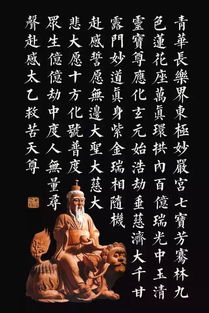 青華長樂界東極妙嚴宮七寶芳騫林九
色蓮花座萬真環拱內百億瑞光中玉清
靈寶尊應化玄元始浩劫垂慈濟大千甘
露門妙道真身紫金瑞相隨機
赴感誓愿無邊大聖大慈大
悲大愿十方化號普度
眾生億億劫中度人無量尋
聲赴感太乙救苦天尊